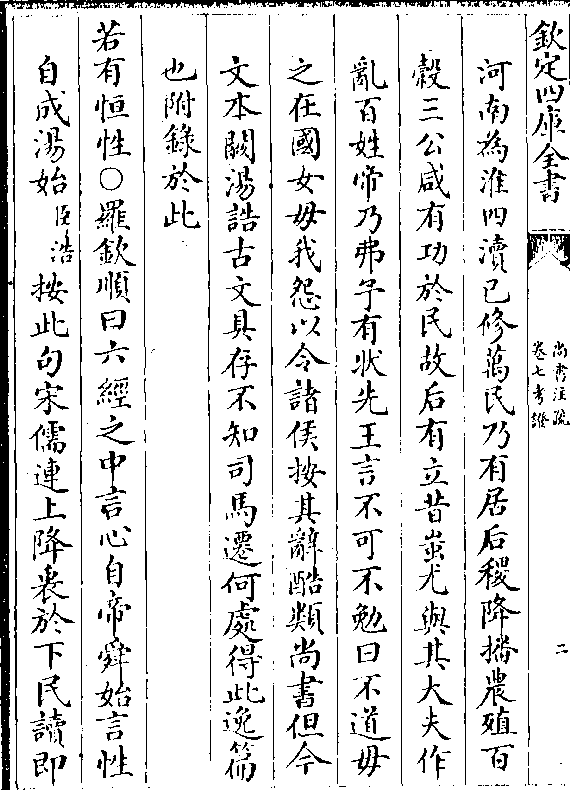 欽定四庫全書
尚書注疏
卷七考證
二
河南為淮四瀆已修萬民乃有居后稷降播農殖百
穀三公咸有功於民故后有立昔蚩尤與其大夫作
亂百姓帝乃弗予有狀先王言不可不勉曰不道毋
之在國女毋我怨以令諸侯按其辭酷類尚書但今
文本闕湯誥古文具存不知司馬遷何處得此逸篇
也附錄於此
若有恒性○羅欽順曰六經之中言心自帝舜始言性
自成湯始臣浩按此句宋儒連上降衷於下民讀即